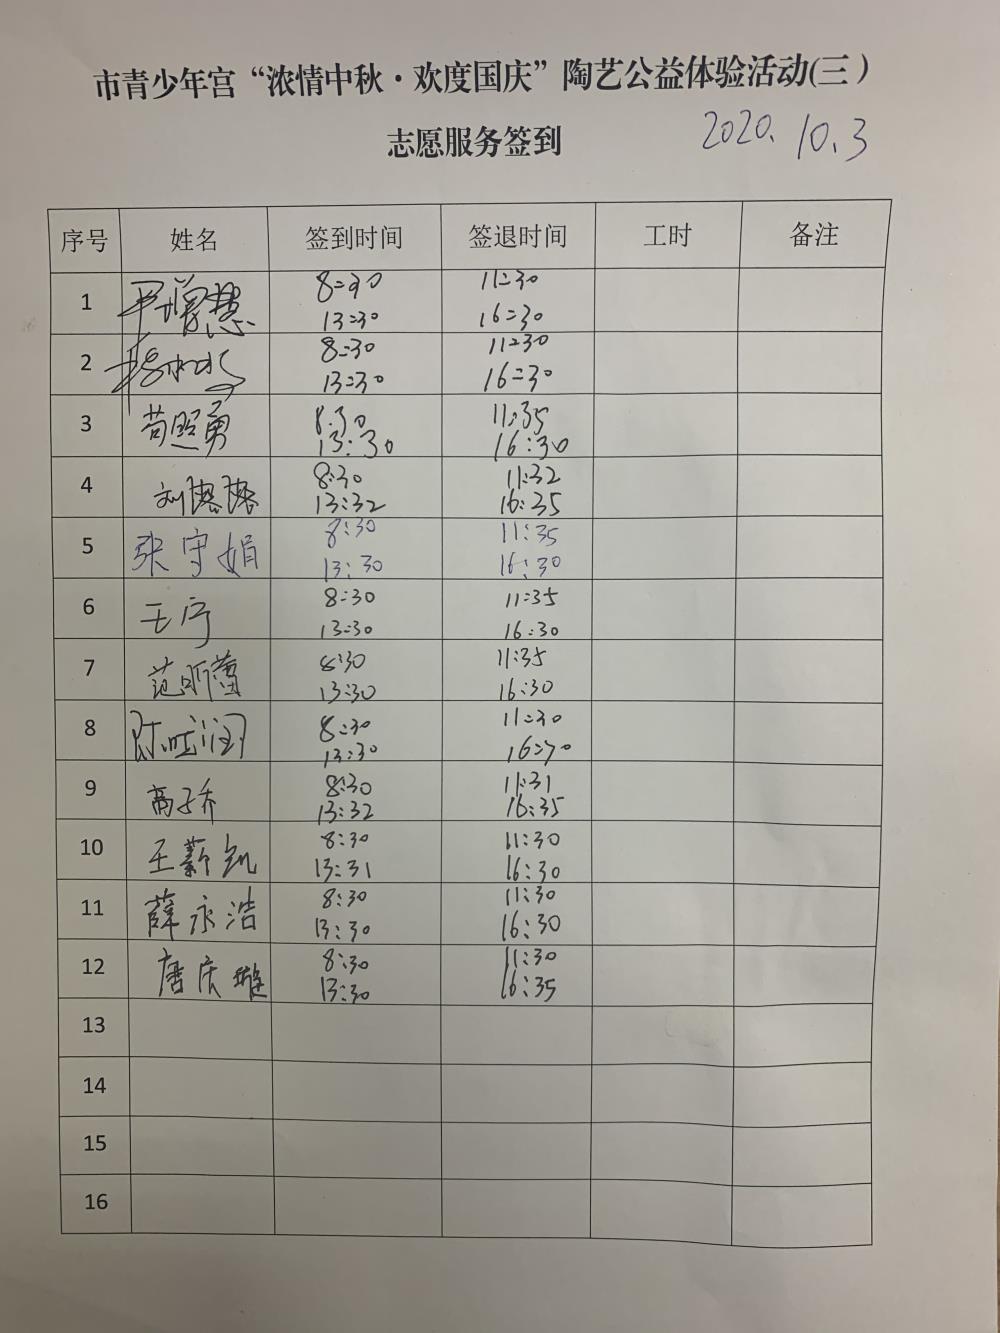 市青少年宫“浓情中秋·欢度国庆”陶艺公益体验活动(三）
志愿服务签到
2020.10.3
序号 姓名 签到时间 签退时间 工时 备注
1 尹增慧 8:30 11:30
13:30 16:30
2 8:30 11:30
13:30 16:30
3 苟照勇 8.30 11:35
13:30 16:30
4 刘 8:30 11:32
13:32 16:35
5 张守娟 8:30 11:35
13:30 16:30
6 王宁 8:30 11:35
13:30 16:30
7 范昕蕾 8:30 11:35
13:30 16:30
8 8:30 11:30
13:30 16:30
9 高子乔 8:30 11:31
13:32 16:35
10 王薪凯 8:30 11:30
13:31 16:30
11 薛永浩 8:30 11:30
13:30 16:30
12 唐庆璇 8:30 11:30
13:30 16:35
13
14
15
16